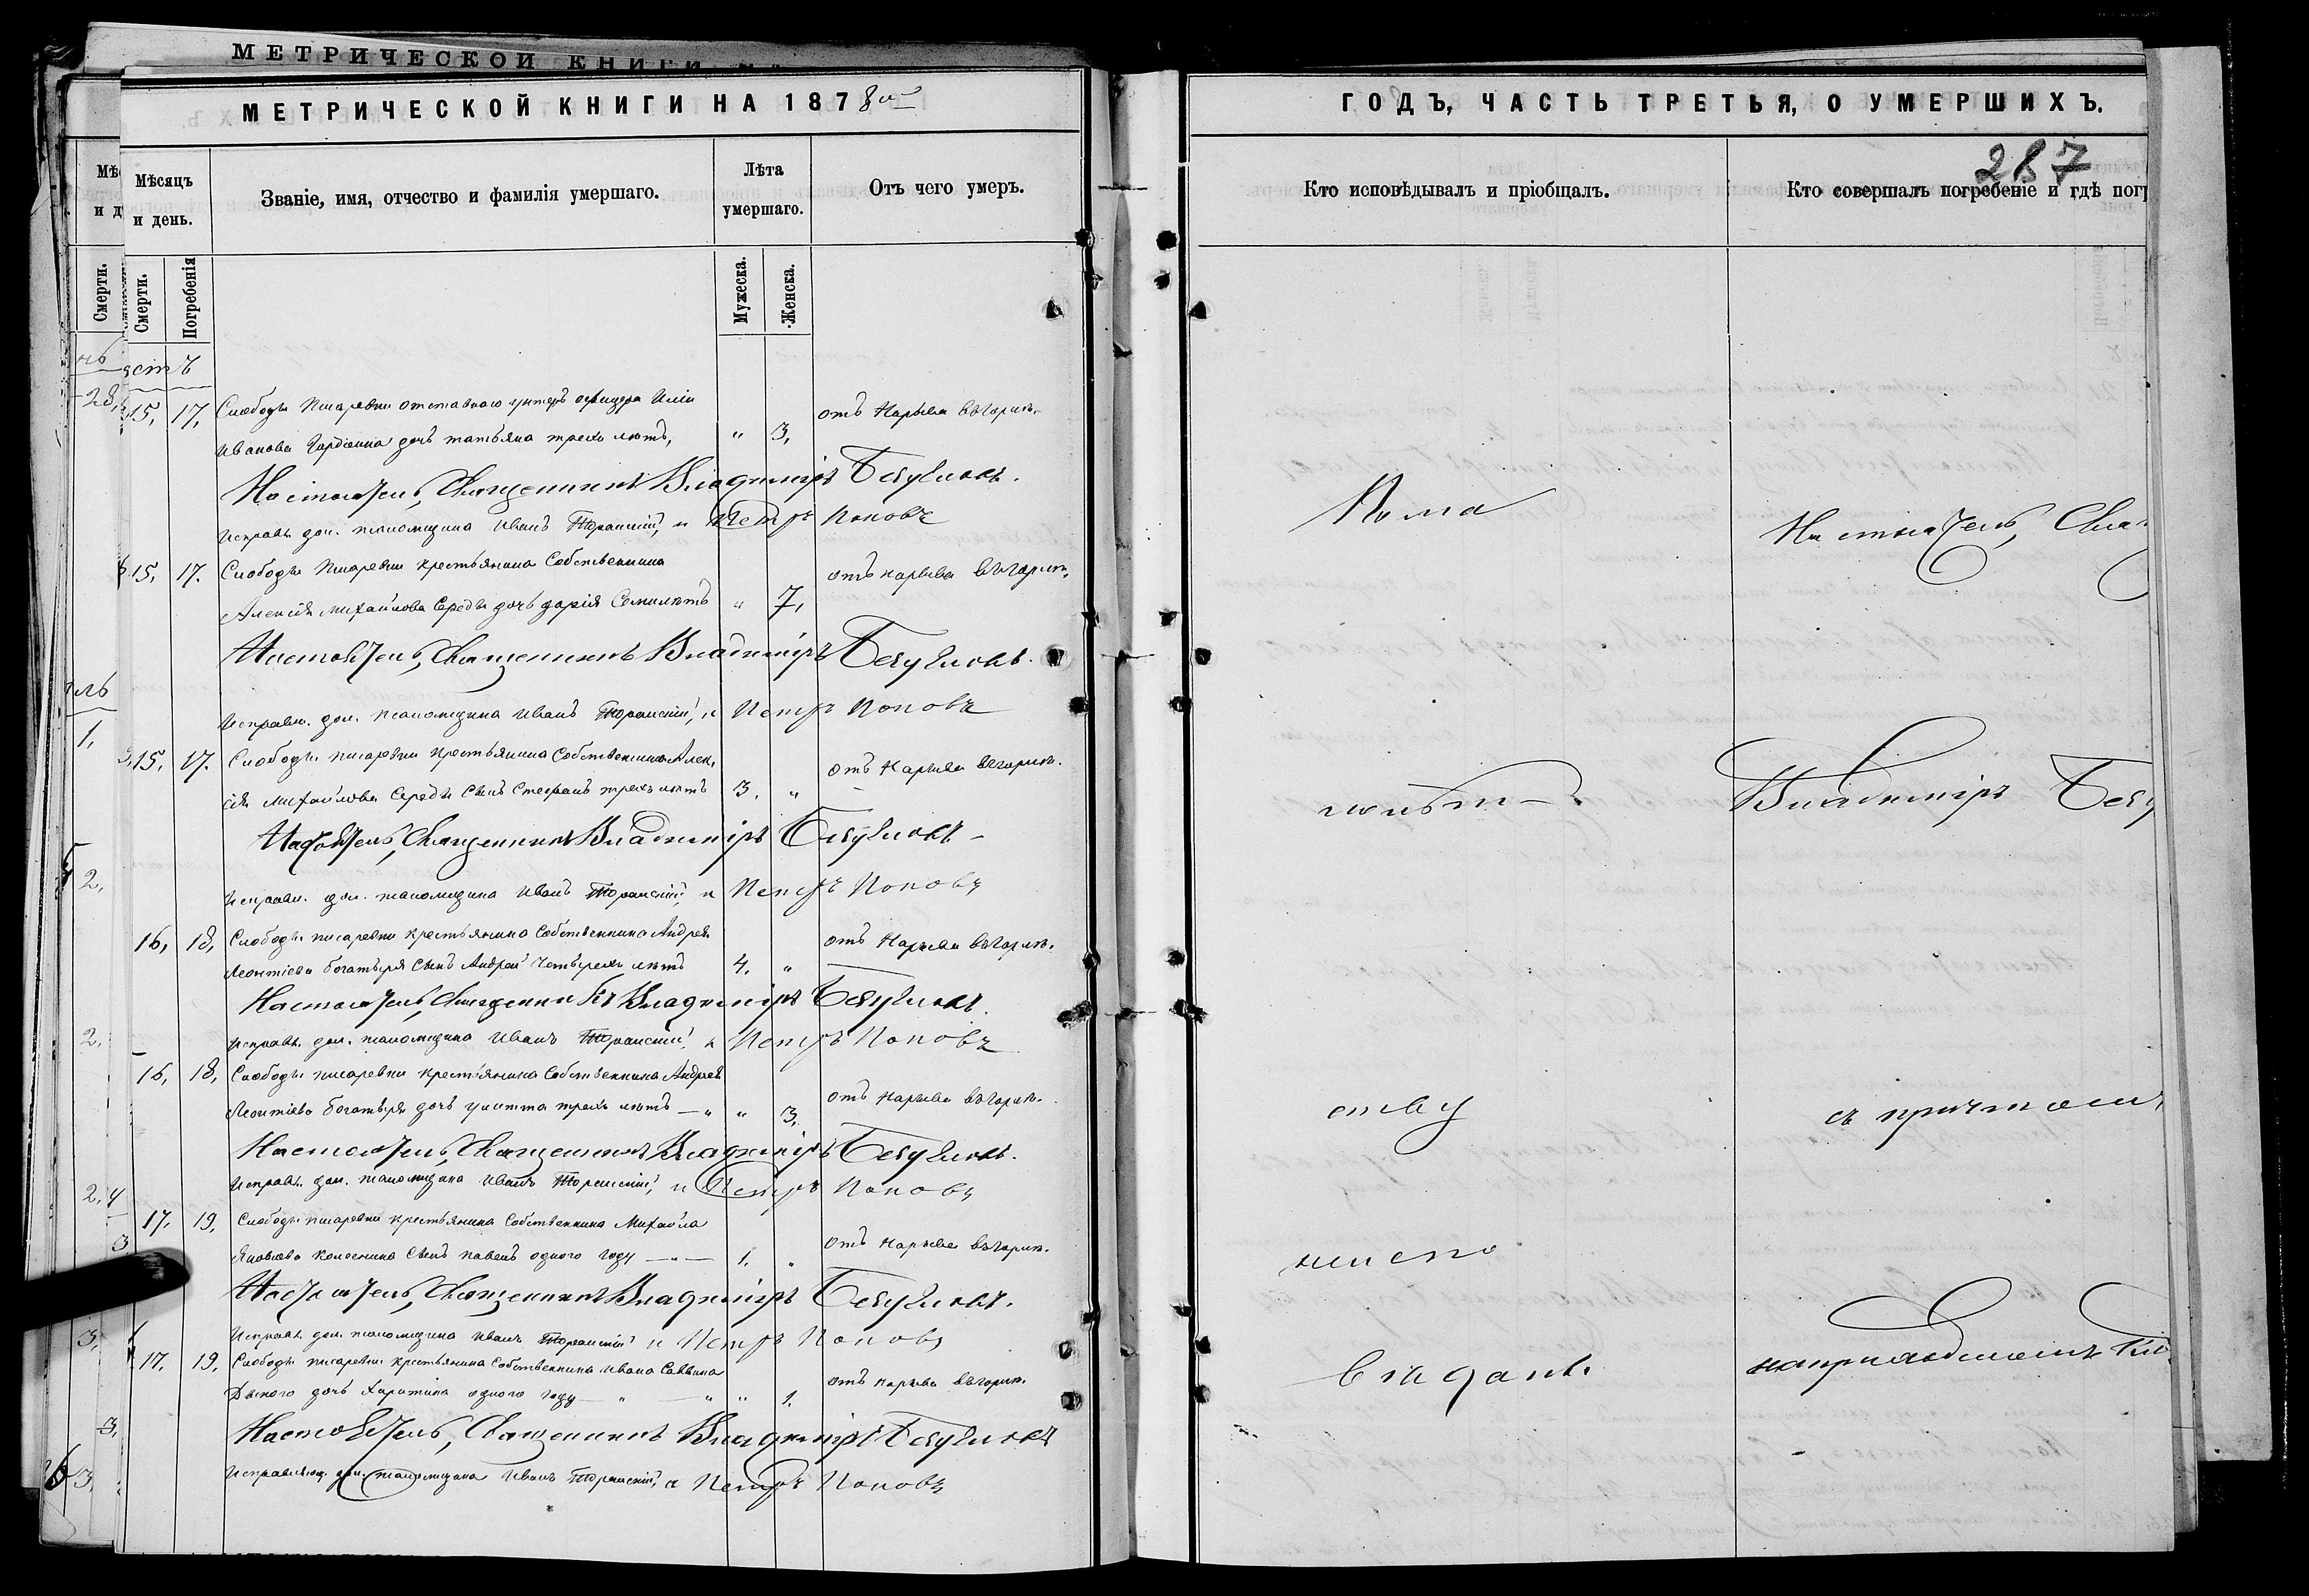 МЕТРИЧЕСКОЙ КНИГИ
МЕТРИЧЕСКОЙ КНИГИ НА 1878 ой
Мѣсяцъ и день.
Званіе, имя, отчество и фамилія умершаго.
Лѣта умершаго.
Отъ чего умеръ.
Смерти.
Погребенія
Мужеска.
Женска.
15, 17, Слободы Писаревки отставнаго унтеръ офицера Иліи
отъ Нарыва въ горлѣ.
Иванова дочь татьяна трехъ лѣтъ, " 3,
Настоятель, Священникъ Владиміръ
Исправл. дол. псаломщика Иванъ и Петръ Поповъ
15, 17. Слободы Писаревки крестьянина Собственника
отъ нарыва въ горлѣ,
Алексія Михайлова Середы дочь дарія Семи лѣтъ " 7,
Настоятель, Священникъ Владиміръ
Исправл. дол. псаломщика Иванъ и Петръ Поповъ
15, 17. Слободы писаревки крестьянина Собственника Алек.
отъ Нарыва въ горлѣ.
сія Михайлова Середы Сынъ Стефанъ трехъ лѣтъ 3. "
Настоятель, Священникъ Владиміръ
Исправл. дол. псаломщика Иванъ и Петръ Поповъ
16, 18, Слободы писаревки крестьянина Собственника Андрея
отъ Нарыва въ горлѣ.
Леонтіева богатыря Сынъ Андрей Четырехъ лѣтъ 4. "
Настоятель, Священникъ Владиміръ
Исправл. дол. псаломщика Иванъ и Петръ Поповъ
16, 18, Слободы писаревки крестьянина Собственника Андрея
отъ Нарыва въ горлѣ.
Леонтіева богатыря дочь трехъ лѣтъ — " " 3,
Настоятель, Священникъ Владиміръ
Исправл. дол. псаломщика Иванъ и Петръ Поповъ
17, 19, Слободы писаревки крестьянина Собственника Михаила
отъ Нарыва въ горлѣ.
Яковлева Колесника Сынъ павелъ одного году — " — 1. "
Настоятель, Священникъ Владиміръ
Исправл. дол. псаломщика Иванъ и Петръ Поповъ
17. 19, Слободы писаревки крестьянина Собственника Ивана Саввина
отъ нарыва въ горлѣ.
дочь Харитина одного году — " — " " 1.
Настоятель, Священникъ Владиміръ
Исправляющ. дол. псаломщика Иванъ и Петръ Поповъ
ГОДЪ, ЧАСТЬ ТРЕТЬЯ, О УМЕРШИХЪ.
287
Кто исповѣдывалъ и пріобщалъ.
Кто совершалъ погребеніе и гдѣ погр
По ма
Настоятель, Свя
лолѣт-
Владиміръ
ству
съ причтомъ
не испо
вѣданы.